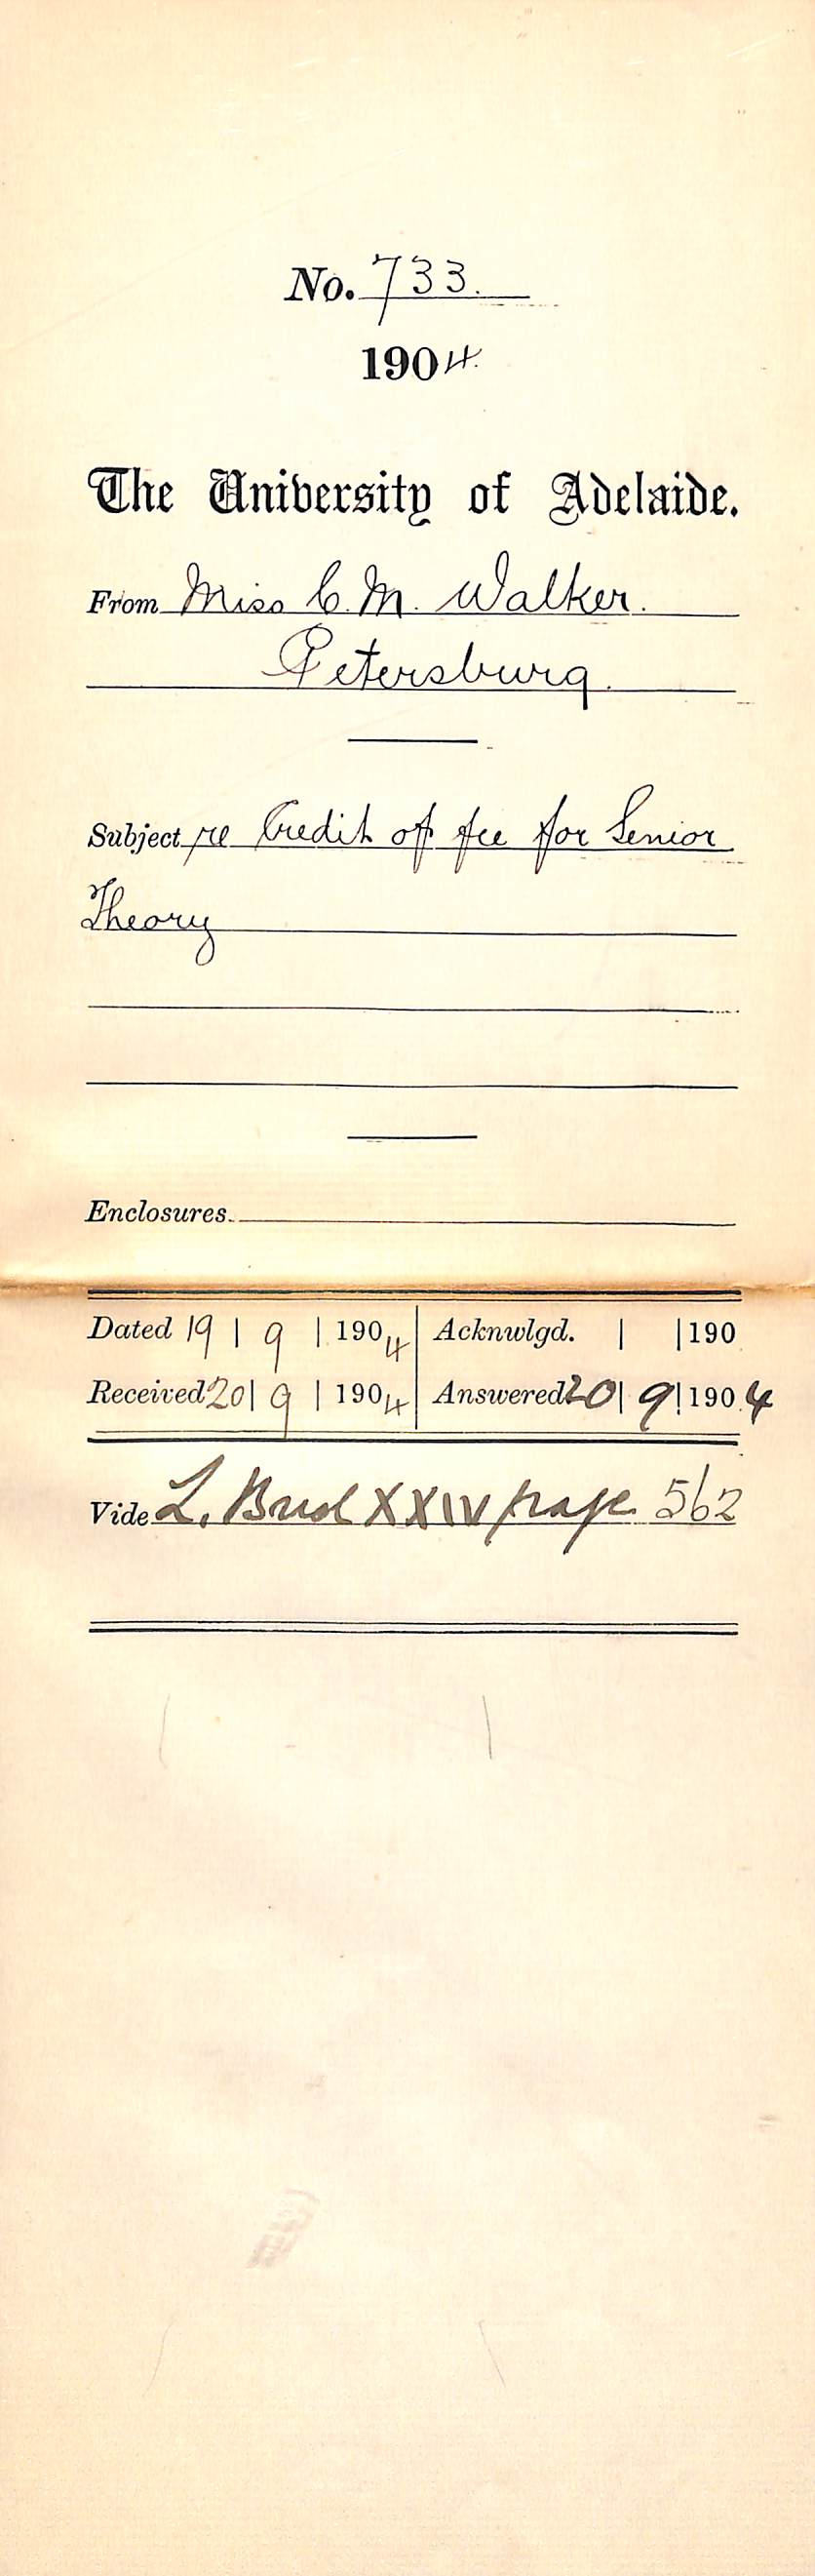 No. 733.
1904.
The University of Adelaide.
From Miss C. M. Walker.
Petersburg.
Subject re Credit of fee for Senior
Theory
Enclosures.
Dated 19 | 9 | 1904 | Acknwlgd. | | 190
Received 20 | 9 | 1904 | Answered 20 | 9 | 1904
Vide L. Book XXIV page 562